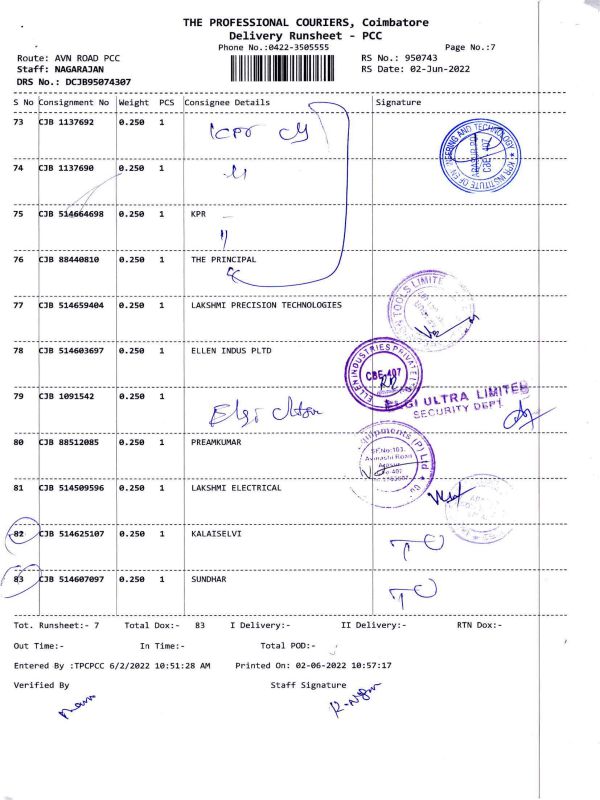 THE PROFESSIONAL COURIERS, Coimbatore
Delivery Runsheet - PCC
Phone No.:0422-3505555
Page No.:7
Route: AVN ROAD PCC
RS No.: 950743
Staff: NAGARAJAN
RS Date: 02-Jun-2022
DRS No.: DCJB95074307
S No Consignment No Weight PCS Consignee Details Signature
73 CJB 1137692 0.250 1
KPR INSTITUTE OF ENGINEERING AND TECHNOLOGY
CBE-407
74 CJB 1137690 0.250 1
75 CJB 514664698 0.250 1 KPR
76 CJB 88440810 0.250 1 THE PRINCIPAL
77 CJB 514659404 0.250 1 LAKSHMI PRECISION TECHNOLOGIES
TOOLS LIMITE
78 CJB 514603697 0.250 1 ELLEN INDUS PLTD
ELLEN INDUSTRIES PRIVATE
CBE-407
79 CJB 1091542 0.250 1
Elgi Ultra
ELGI ULTRA LIMITED
SECURITY DEPT
80 CJB 88512085 0.250 1 PREAMKUMAR
Equipments (P) Ltd
SF.No:103,
Avinashi Road
81 CJB 514509596 0.250 1 LAKSHMI ELECTRICAL
82 CJB 514625107 0.250 1 KALAISELVI
83 CJB 514607097 0.250 1 SUNDHAR
Tot. Runsheet:- 7 Total Dox:- 83 I Delivery:- II Delivery:- RTN Dox:-
Out Time:- In Time:- Total POD:-
Entered By :TPCPCC 6/2/2022 10:51:28 AM Printed On: 02-06-2022 10:57:17
Verified By Staff Signature